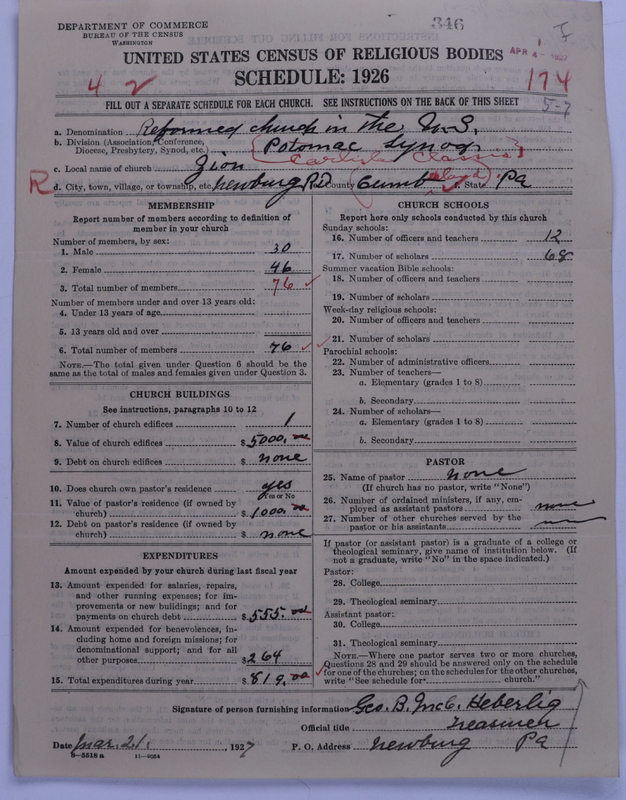 DEPARTMENT OF COMMERCE
BUREAU OF THE CENSUS
WASHINGTON
346
UNITED STATES CENSUS OF RELIGIOUS BODIES
APR 4 1927
SCHEDULE: 1926
4 2
174
FILL OUT A SEPARATE SCHEDULE FOR EACH CHURCH. SEE INSTRUCTIONS ON THE BACK OF THIS SHEET
5-7
a. Denomination Reformed church in the U.S.
b. Division (Association, Conference, Diocese, Presbytery, Synod, etc.) Potomac Synod
Carlisle Classis
c. Local name of church Zion
R d. City, town, village, or township, etc. Newburg RD County Cumb(erland) State Pa
MEMBERSHIP
Report number of members according to definition of member in your church
Number of members, by sex:
1. Male 30
2. Female 46
3. Total number of members 76
Number of members under and over 13 years old:
4. Under 13 years of age
5. 13 years old and over
6. Total number of members 76
NOTE.—The total given under Question 6 should be the same as the total of males and females given under Question 3.
CHURCH BUILDINGS
See instructions, paragraphs 10 to 12
7. Number of church edifices 1
8. Value of church edifices $5000.00
9. Debt on church edifices $ none
10. Does church own pastor's residence yes
Yes or No
11. Value of pastor's residence (if owned by church) $1000.00
12. Debt on pastor's residence (if owned by church) $ none
EXPENDITURES
Amount expended by your church during last fiscal year
13. Amount expended for salaries, repairs, and other running expenses; for improvements or new buildings; and for payments on church debt $555.00
14. Amount expended for benevolences, including home and foreign missions; for denominational support; and for all other purposes $264
15. Total expenditures during year $819.00
CHURCH SCHOOLS
Report here only schools conducted by this church
Sunday schools:
16. Number of officers and teachers 12
17. Number of scholars 68
Summer vacation Bible schools:
18. Number of officers and teachers
19. Number of scholars
Week-day religious schools:
20. Number of officers and teachers
21. Number of scholars
Parochial schools:
22. Number of administrative officers
23. Number of teachers—
a. Elementary (grades 1 to 8)
b. Secondary
24. Number of scholars—
a. Elementary (grades 1 to 8)
b. Secondary
PASTOR
25. Name of pastor none
(If church has no pastor, write "None")
26. Number of ordained ministers, if any, employed as assistant pastors none
27. Number of other churches served by the pastor or his assistants
If pastor (or assistant pastor) is a graduate of a college or theological seminary, give name of institution below. (If not a graduate, write "No" in the space indicated.)
Pastor:
28. College
29. Theological seminary
Assistant pastor:
30. College
31. Theological seminary
NOTE.—Where one pastor serves two or more churches, Questions 28 and 29 should be answered only on the schedule for one of the churches; on the schedules for the other churches, write "See schedule for church."
Signature of person furnishing information Geo. B. McC. Heberlig
Official title Treasurer
Date Mar. 21. 1927 P. O. Address Newburg Pa
8-5518 a 11-9064